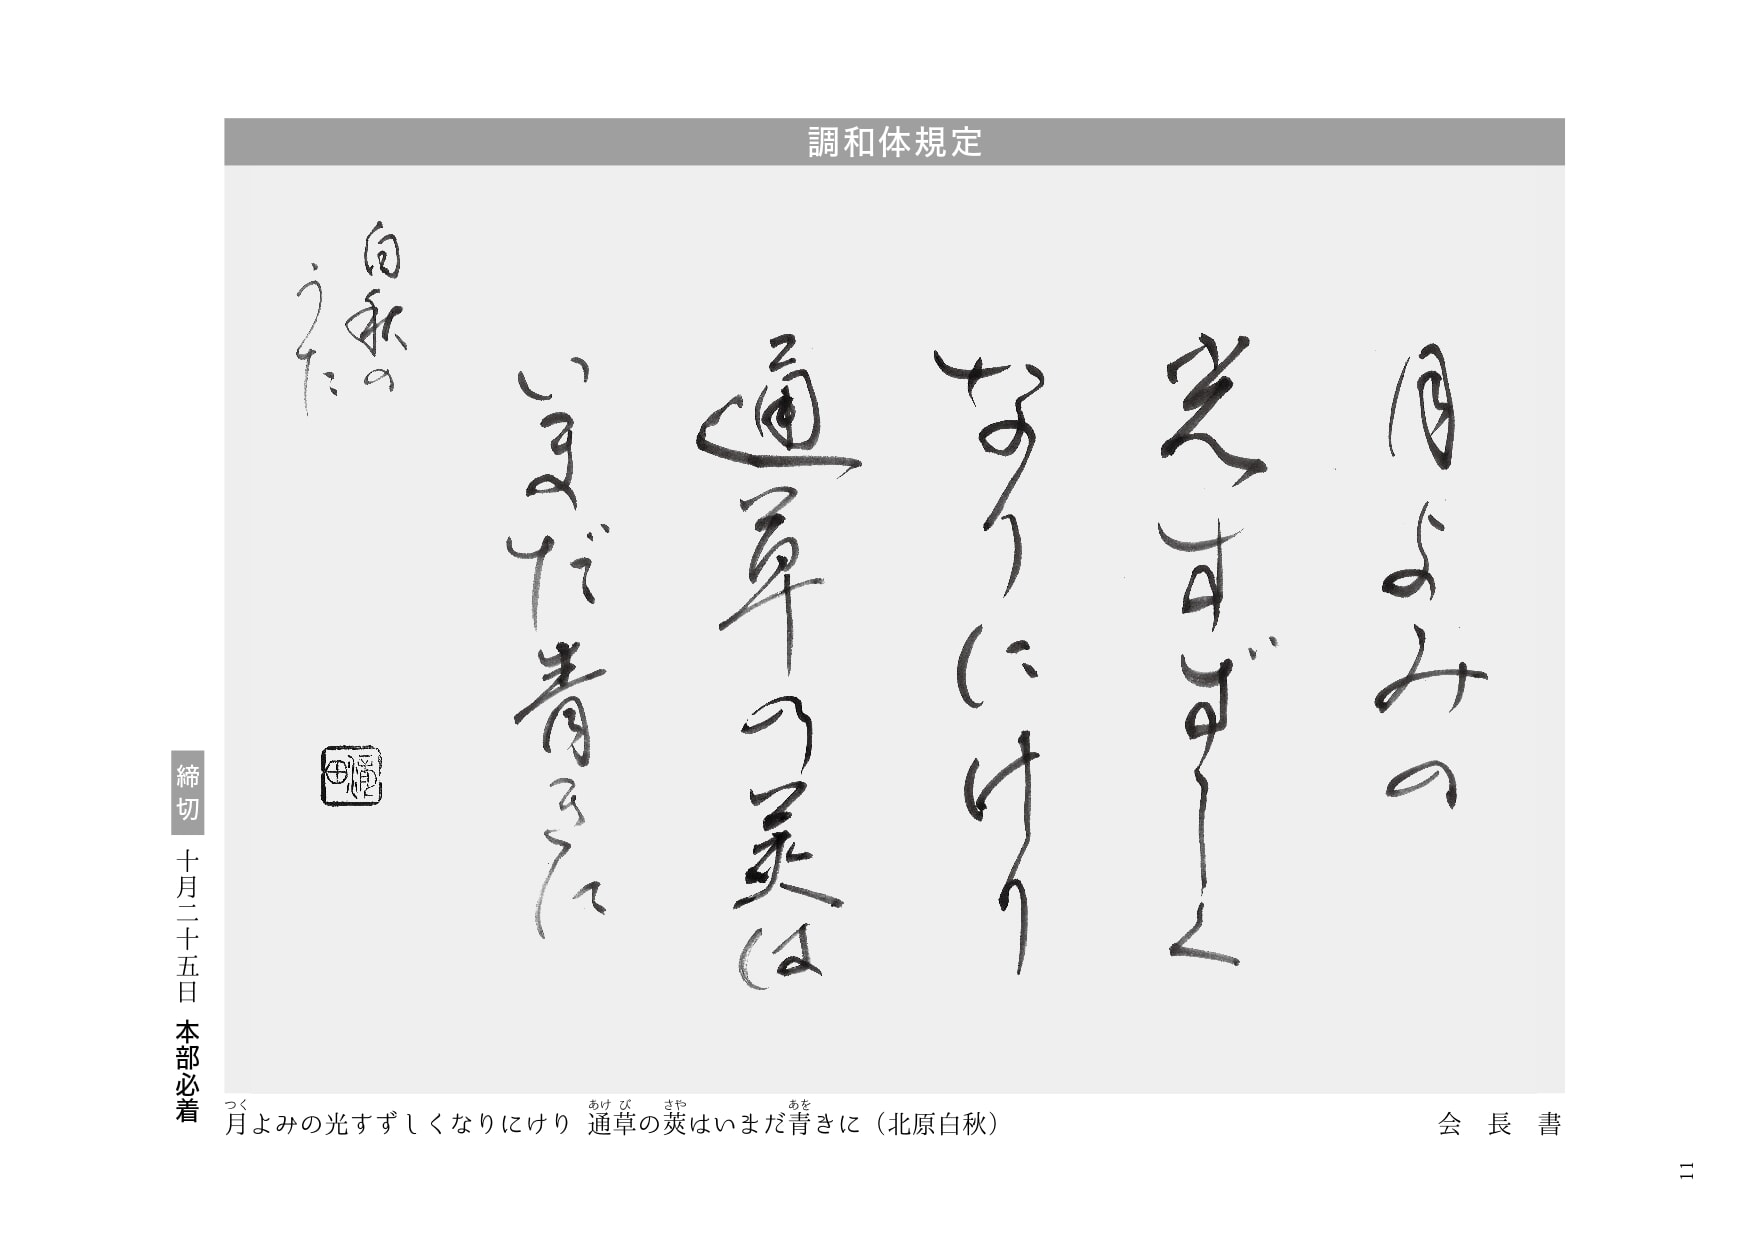 調和体規定
月よみの
光すずしく
なりにけり
通草の莢は
いまだ青きに
白秋の
うた
締切 十月二十五日 本部必着
つく あけび さや あを
月よみの光すずしくなりにけり 通草の莢はいまだ青きに（北原白秋）
会長書
11